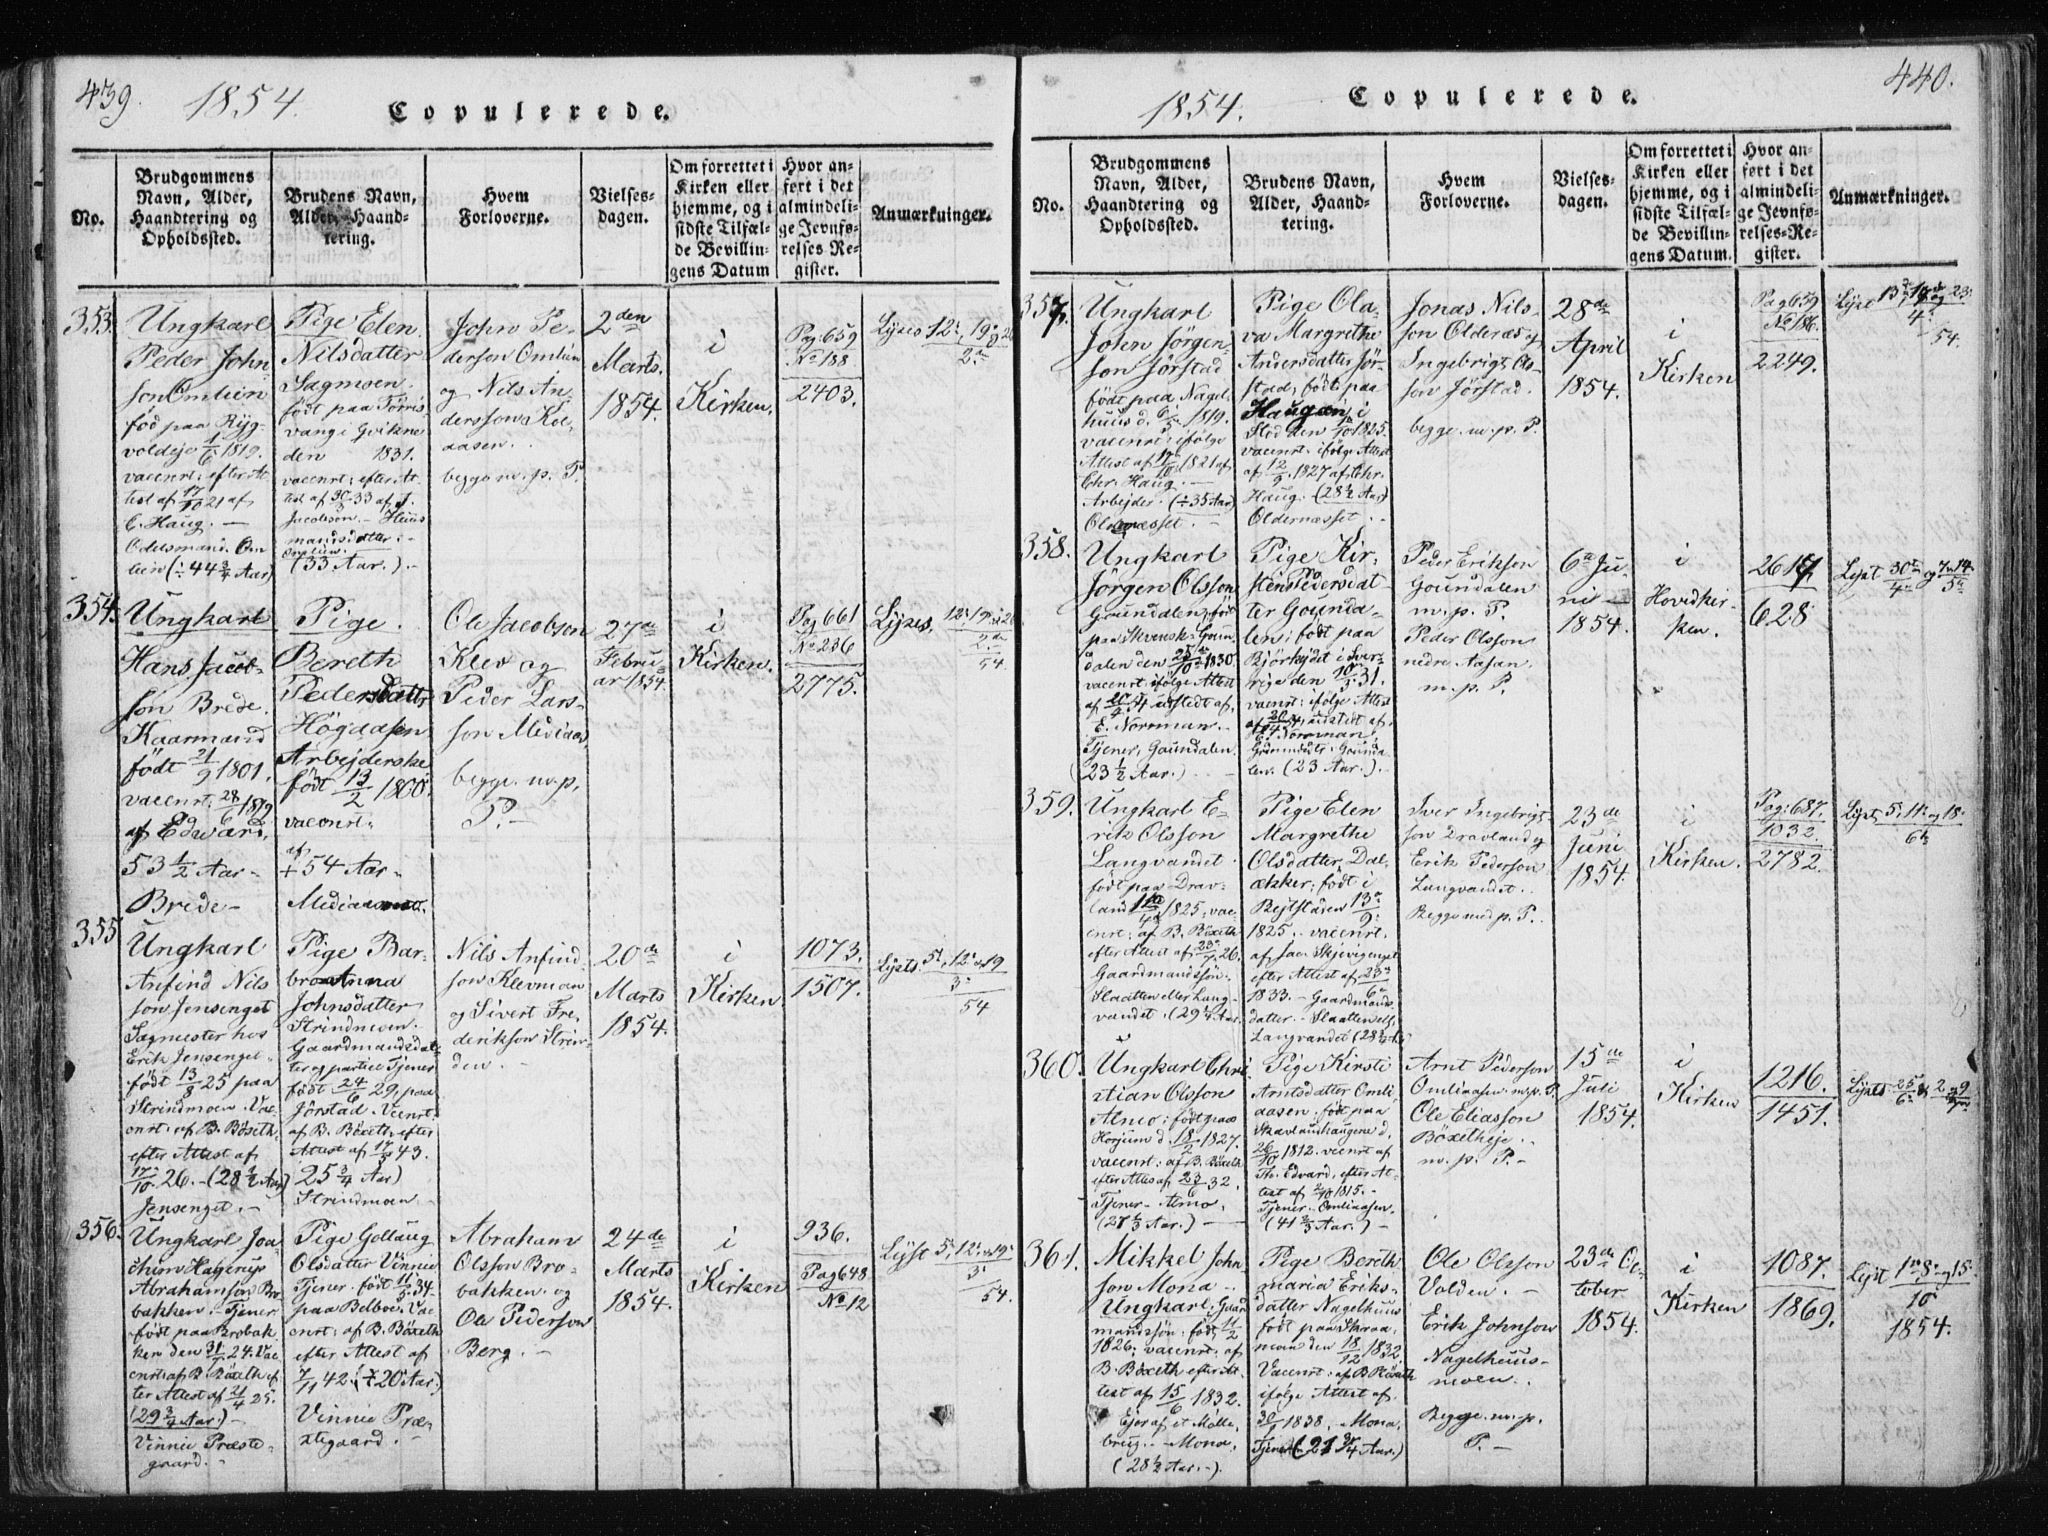 439.
1854.
Copulerede.
No.
Brudgommens
Navn, Alder,
Haandtering og
Opholdssted.
Brudens Navn,
Alder, Haand-
tering.
Hvem
Forloverne.
Vielses-
dagen.
Om forrettet i
Kirken eller
hjemme, og i
sidste Tilfæl-
de Bevillin-
gens Datum
Hvor an-
ført i det
almindeli-
ge Jevnfø-
relses Re-
gister.
Anmærkninger.
353.
Ungkarl
Peder John
son Omlien
fød paa Ryg-
voldeje 1/6 1819.
vaccnrt: efter At-
test af 17/10 21 af
C. Haug. —
Odelsmand. Om
lien (÷ 44 3/4 Aar)
Pige Elen
Nilsdatter
Sagmoen.
født paa Törris
vang i Qvikne
den 1831.
vaccnrt: efter At-
test af 30/3 33 af J.
Jacobson. — Huus
mandsdatter. -
Omlien.
(33 Aar.) -
John Pe-
derson Omlien
og Nils An-
dersson Koe-
aasen.
begge m. p. P.
2den
Marts.
1854.
i
Kirken.
Pag: 659
No 188
2403.
Lyses 12', 19' & 26
2'
354.
Ungkarl
Hans Jacob-
son Brede.
Kaarmand
født 21/9 1801.
vaccnrt. 28/6 1819
af Edward.
53 1/2 Aar -
Brede -
Pige.
Bereth
Pedersdatter
Högaasen
Arbejderske
født 13/2 1800.
vaccnrt.
af
+ 54 Aar -
Ole Jacobson
Klev og
Peder Lars-
son Mediaas,
begge. m. p.
P. -
27de
Febru-
ar 1854.
i
Kirken.
Pag 661
No 236
2775.
Lyses. 12' 19' & 26
2'
54.
355
Ungkarl
Anfind Nils
son Jensenget
Sagmester hos
Erik Jensenget -
født 13/8 25 paa
Strindmoen. Vac
cnrt: af B. Böxeth.
efter Attest af
17/10 26. - (28 1/2 Aar)
Jensenget. -
Pige Bar-
broe Anna
Johnsdatter
Strindmoen. -
Gaardmandsdat-
ter og partiel Tjener
født 24/6 29, paa
Jörstad. Vccnrt:
af B. Böxeth, efter
Attest af 17/5 43.
25 3/4 Aar)
Strindmoen
Nils Anfind-
son Klevmoen
og Sivert Fre-
derikson Strin-
den. -
20de
Marts
1854.
i
Kirken
1073.
1507.
Lysts: 5', 12' & 19
3'
54
356.
Ungkarl Joa-
chim Hagerup
Abrahamson Bro
bakken. Tjener
født paa Brobak-
ken den 31/ 24. Vac
cnrt af B. Böxeth ef-
ter Attest af 21/4 25.
(29 3/4 Aar.) -
Vinnie Præste-
gaard. -
Pige Gollaug
Olsdatter Vinnie
Tjener. født 11/5 34.
paa Belboe. Vac
cnrt: af B. Böxeth
efter Attest af
7/11 42. (÷ 20 Aar.)
Vinnie Præ-
stegaard. -
Abraham
Olsson Bro-
bakken. og
Ole Pederson
Berg. -
24de
Marts
1854.
i
Kirken
936.
Pag 648
No 12
Lyst 5', 12' & 19'
3'
54.
440.
1854.
Copulerede.
No.
Brudgommens
Navn, Alder,
Haandtering og
Opholdssted.
Brudens Navn,
Alder, Haand-
tering.
Hvem
Forloverne.
Vielses-
dagen.
Om forrettet i
Kirken eller
hjemme, og i
sidste Tilfæl-
de Bevillin-
gens Datum.
Hvor an-
ført i det
almindeli-
ge Jevnfø-
relses-Re-
gister.
Anmærkninger.
357.
Ungkarl
John Jörgen-
son Jörstad
født paa Nagel-
huus d. 6/5 1819.
vaccnrt: ifölge
Attest af 17/10 1821 af
Chr. Haug. —
Arbejder. (÷ 35 Aar)
Oldernæsset. -
Pige Ola-
va Margrethe
Andersdatter Jör-
stad, født paa
Haugan i
Stod den 1/10 1825.
vaccnrt: ifölge Attest
af 12/9 1827 af Chr.
Haug. (28 1/2 Aar)
Oldernæsset. -
Jonas Nils-
son Olderæs og
Ingebrigt Ols-
son Jörstad.
begge. m. p. P.
28de
April
1854.
i
Kirken
Pag 659
No 186.
2249.
54.
358.
Ungkarl
Jörgen Olsson
Gaundalen, fød
paa Svensk-Gaun-
dalen den 25/10 1830.
vaccnrt: ifölge Attest
af 20/4 54 udstedt af,
E. Norrman. —
Tjener, Gaundalen.
23 1/2 Aar.)
Pige Kir-
stena Pedersdat-
ter Gaunda-
len; født paa
Björkejdet i Sver-
rige den 10/3 31.
vaccnrt: ifölge Attest
af 20/4 54, udstedt af,
E. Norrman,
len. (23 Aar.) -
Peder Erikson
Gaundalen
m. p. P.
Peder Olsson
nedre Aasan.
m. p. P.
6te Ju-
ni -
1854.
i
Hovidkir-
ken.
2617
628.
Lyst 30/4 og 7 & 14/5
359.
Ungkarl E-
rik Olsson
Langvandet.
født paa Drav-
land 1825, vac-
cnrt: af B. Böxeth
efter Attest af 23/7 26.
Gaardmandssön.
Slaatten eller Lang-
vandet. (29 1/4 Aar.
Pige Elen
Margrethe
Olsdatter, Dal-
bækken: født i
Bejtstaden 13/9
1825. vaccnrt.
efter Attest af 23/6
1833. - Gaardmands
datter. - Slaatten ell.
Langvandet (28 3/4 A.
Iver Ingebrigt-
son Dravland og
Erik Pederson
Langvandet. -
Begge med p. P.
23de
Juni
1854.
i
Kirken.
Pag: 687.
1032.
2782.
Lyst. 5, 11. og 18.
6'
360.
Ungkarl Chri
stian Olsson
Almo: født paa
Horjum d. 18/2 1827.
vaccnrt: af B. Böxeth
efter Attest af 23/6 32.
Tjener. Almo.
(27 1/3 Aar.) —
Pige Kirsti
Arntsdatter Omli-
aasen: født paa
Skavlandhaugene d.
26/10 1812. vccnrt af
Th. Edvard, efter At-
test af 2/10 1815. -
Tjener. Omliaasen.
(41 2/3 Aar.) -
Arnt Pederson
Omliaasen m. p. P.
Ole Eliasson
Böxetheje. -
m. p. P. -
15de
Juli
1854.
i
Kirken
1216.
1451.
Lysts 25/6 & 2 og 9
361.
Mikkel John-
son Mona
Ungkarl. Gaard
mandssön: født 11/2
1826. vaccnrt: af
B. Böxeth efter At-
test af 15/6 1832.
Ejer af et Mölle-
brug. - Mona.
(28 1/2 Aar. -).
Pige Bereth
maria Eriks-
datter Nagelhuus
født paa Skraa-
moen den 18/12 1832
Vaccnrt: af B. Böxeth
ifölge Attest af.
30/ 1838. Mona.
Tjener (21 3/4 Aar.)
Ole Olsson
Volden. -
Erik Johnson
Nagelhuus-
moen. -
Begge. m. p.
P. -
23de Oc-
tober
1854.
i
Kirken
1087.
1869.
Lyst 1', 8' og 15'
10
1854.